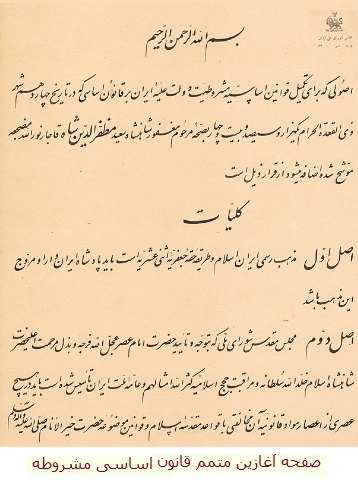 بسم الله الرحمن الرحیم
اصولی که برای تکمیل قوانین اساسیه مشروطیت دولت علیهٔ ایران بر قانون اساسی که در تاریخ چهاردهم شهر
ذی القعدة الحرام یکهزار و سیصد و بیست و چهار بصحهٔ مرحوم مغفور شاهنشاه سعید مظفرالدین شاه قاجار نورالله مضجعه
موشح شده اضافه میشود از قرار ذیل است
کلیات
اصل اول مذهب رسمی ایران اسلام و طریقه حقه جعفریه اثنی عشریه است باید پادشاه ایران دارا و مروج
این مذهب باشد
اصل دوم مجلس مقدس شورای ملی که بتوجه و تأیید حضرت امام عصر عجل الله فرجه و بذل مرحمت اعلیحضرت
شاهنشاه اسلام خلدالله سلطانه و مراقبت حجج اسلامیه کثرالله امثالهم و عامه ملت ایران تأسیس شده است باید در هیچ
عصری از اعصار مواد قانونیه آن مخالفتی با قواعد مقدسه اسلام و قوانین موضوعه حضرت خیرالانام صلی الله علیه و آله وسلم
صفحه آغازین متمم قانون اساسی مشروطه